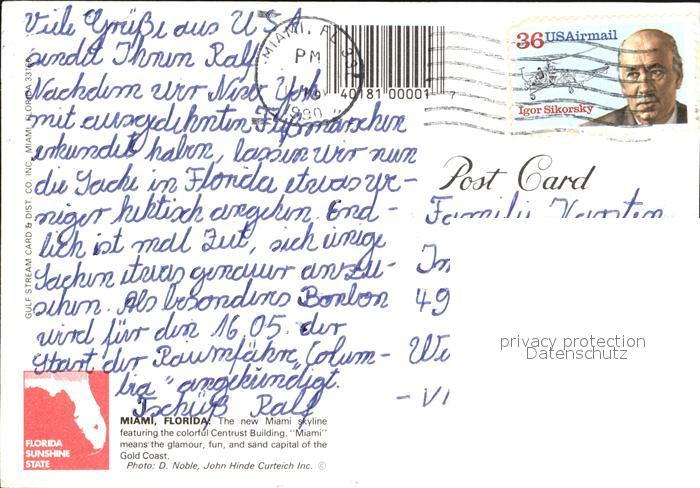 Viele Grüße aus USA
sendet Ihnen Ralf
Nachdem wir New York
mit ausgedehnten "Fußmärschen"
erkundet haben, lassen wir nun
die Sache in Florida etwas we-
niger hektisch angehen. End-
lich ist mal Zeit, sich einige
Sachen etwas genauer anzu-
sehen. Als besonderes Bonbon
wird für den 16.05. der
Start der Raumfähre "Colum-
bia" angekündigt.
Tschüß Ralf
MIAMI, FL 331
PM
1990
40181 00001 7
36 USAirmail
Igor Sikorsky
Post Card
Familie
49
privacy protection
Datenschutz
GULF STREAM CARD & DIST. CO. INC., MIAMI, FLORIDA 331
FLORIDA
SUNSHINE
STATE
MIAMI, FLORIDA: The new Miami skyline
featuring the colorful Centrust Building. "Miami"
means the glamour, fun, and sand capital of the
Gold Coast.
Photo: D. Noble, John Hinde Curteich Inc. ©